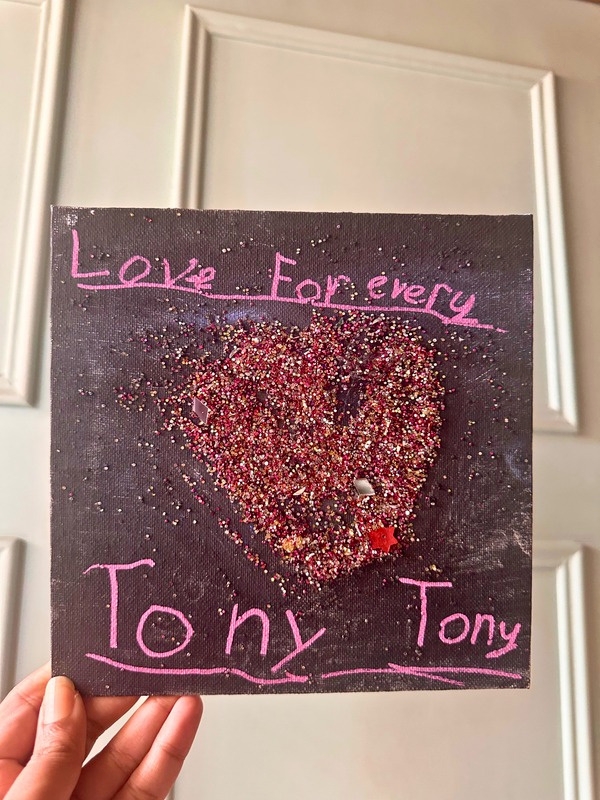 Love For every
Tony Tony